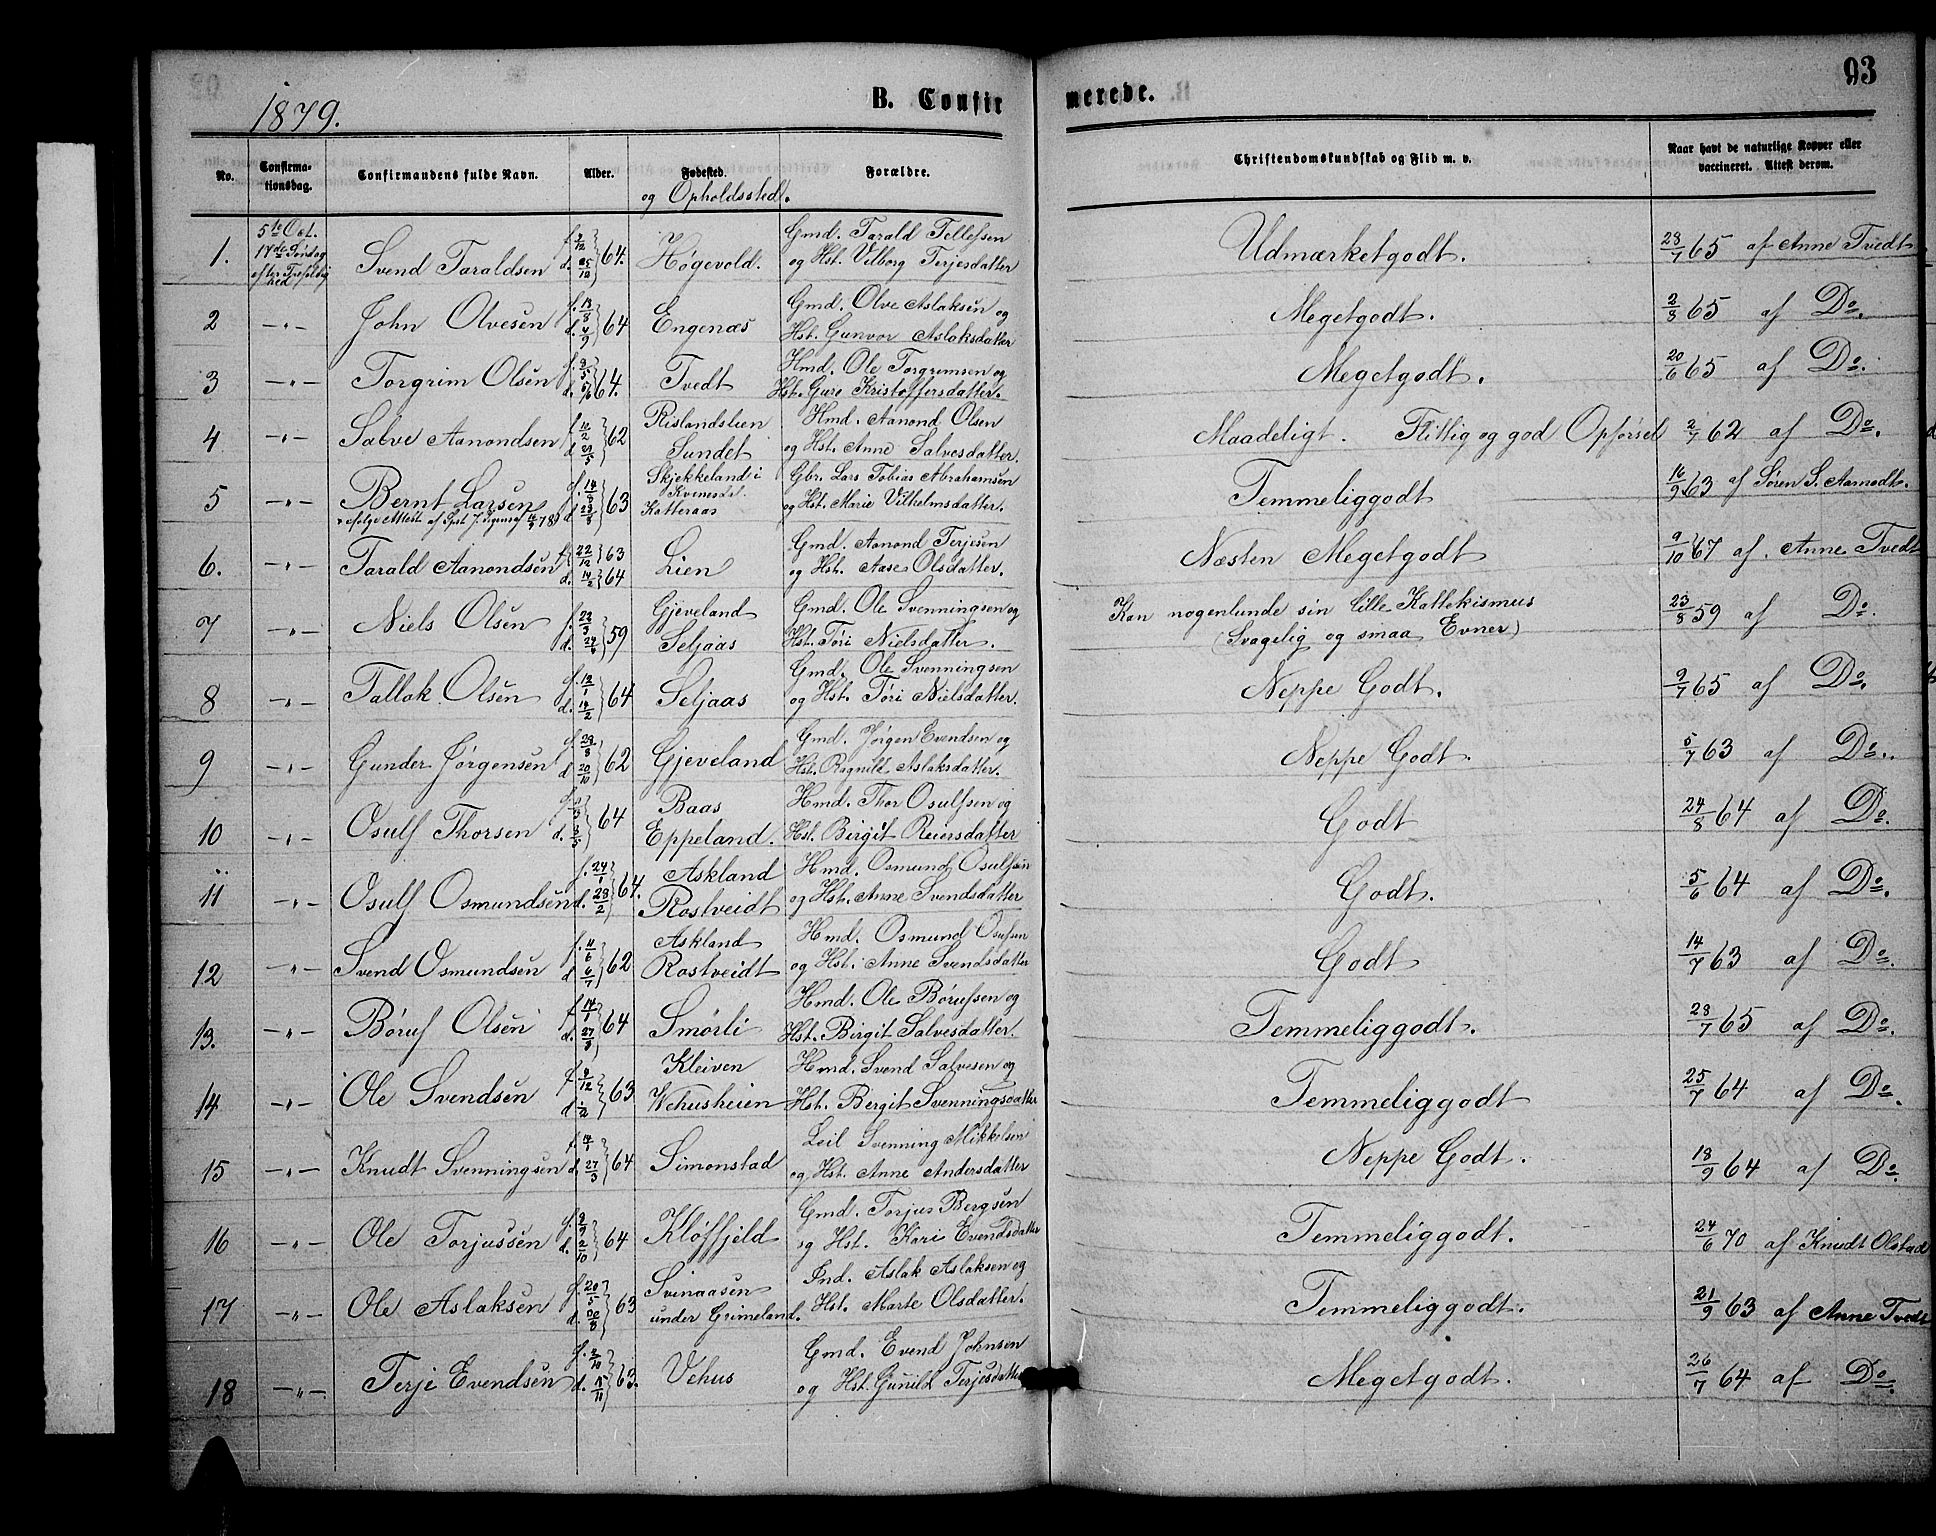 93
1879.
B. Confirmerede.
No.
Confirmationsdag.
Confirmandens fulde Navn.
Alder.
Fødested.
og Opholdssted.
Forældre.
Christendomskundskab og Flid m. v.
Naar havt de naturlige Kopper eller
vaccineret. Attest derom.
1. 5te Oct. 17de Søndag efter Trefoldighed Svend Taraldsen 64. Høgevold. Gmd. Tarald Tellefsen og Hst. Vilborg Terjesdatter Udmærketgodt. 28/7 65 af Anne Tvedt
2 -"- John Olvesen 64 Engenæs Gmd. Olve Aslaksen og Hst. Gunvor Aslaksdatter Megetgodt. 2/8 65 af Do.
3 -"- Torgrim Olsen 64. Tvedt Hmd. Ole Torgrimsen og Hst. Guro Kristoffersdatter. Megetgodt. 20/6 65 af Do.
4 -"- Salve Aanondsen 62 Rislandslien Sundet Hmd. Aanond Olsen og Hst. Anne Salvesdatter. Maadeligt. Flittig og god Opførsel 2/7 62 af Do.
5 -"- Bernt Larsen f. 14/8 63 Skjekkeland i Katteraas Gbr. Lars Tobias Abrahamsen og Hst. Marie Vilhelmsdatter. Temmeliggodt 16/9 63 af Søren S. Aamodt.
6. -"- Tarald Aanondsen f. 22/12 63 d. 14/2 64 Lien Gmd. Aanond Terjesen og Hst. Aase Olsdatter. Næsten Megetgodt 9/10 67 af Anne Tvedt
7 -"- Niels Olsen 59 Gjeveland Seljaas Gmd. Ole Svenningsen og Hst. Tøri Nielsdatter. Kan nogenlunde sin lille Kattekismus (Svagelig og smaa Evner) 23/8 59 af Do.
8 -"- Tallak Olsen 64 Seljaas Gmd. Ole Svenningsen og Hst. Tøri Nielsdatter. Neppe Godt. 9/7 65 af Do.
9 -"- Gunder Jørgensen f. 28/8 d. 20/10 62 Gjeveland Gmd. Jørgen Evendsen og Hst. Ragnild Aslaksdatter. Neppe Godt. 5/7 63 af Do.
10 -"- Osulf Thorsen 64 Baas Eppeland. Hmd. Thor Osulfsen og Hst. Birgit Reiersdatter Godt 24/8 64 af Do.
11 -"- Osulf Osmundsen f. 24/1 d. 28/2 64. Askland Rostveidt Hmd. Osmund Osulfsen og Hst. Anne Svendsdatter Godt. 5/6 64 af Do.
12 -"- Svend Osmundsen 62 Askland Rostveidt Hmd. Osmund Osulfsen og Hst. Anne Svendsdatter Godt 14/7 63 af Do.
13. -"- Børuf Olsen 64 Smørli Hmd. Ole Børufsen og Hst. Birgit Salvesdatter. Temmeliggodt. 28/7 65 af Do.
14 -"- Ole Svendsen 63 Kleiven Wehusheien Hmd. Svend Salvesen og Hst. Bergit Svenningsdatter Temmeliggodt 25/7 64 af Do.
15 -"- Knudt Svenningsen d. 27/3 64 Simonstad Leil Svenning Mikkelsen og Hst. Anne Andersdatter Neppe Godt. 18/9 64 af Do.
16 -"- Ole Torjussen f. 9/9 d. 2/10 64 Kløffjeld Gmd. Torjus Bergsen og Hst. Kari Evendsdatter Temmeliggodt. 24/6 70 af Knudt Olstad
17 -"- Ole Aslaksen f. 20/5 d. 30/8 63 Svinaasen under Grimeland. Ind. Aslak Aslaksen og Hst. Marte Olsdatter. Temmeliggodt. 21/9 63 af Anne Tvedt
18 -"- Terje Evendsen 63. Vehus Gmd. Evend Johnsen og Hst. Gunild Terjesdatter Megetgodt. 26/7 64 af Do.